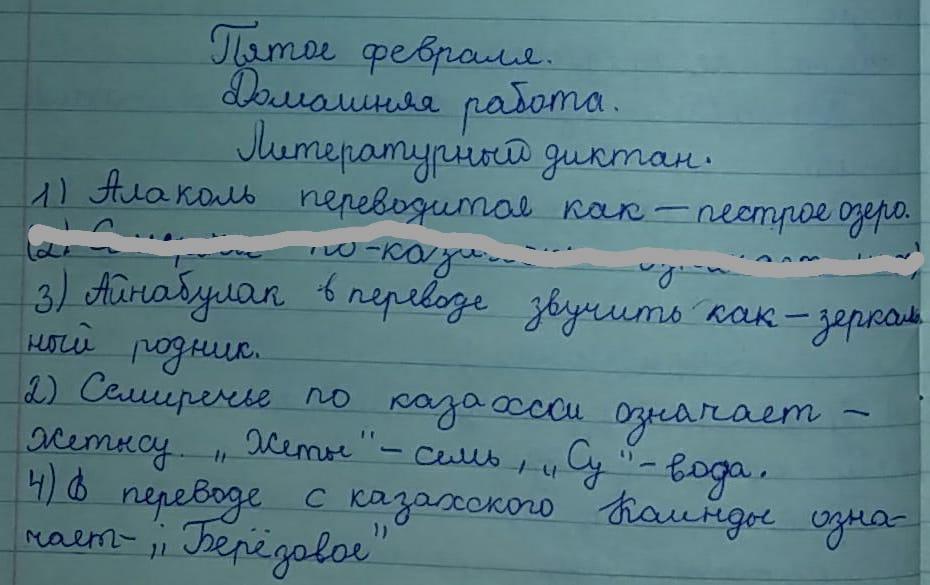 Пятое февраля.
Домашняя работа.
Литературный диктан.
1) Алаколь переводится как — пестрое озеро.
по-каза
3) Айнабулак в переводе звучить как — зеркаль
ный родник.
2) Семиречье по казахски означает —
Жетысу. „Жеты" - семь, „Су" - вода.
4) В переводе с казахского Каинды озна-
чает - „Берёзовое"